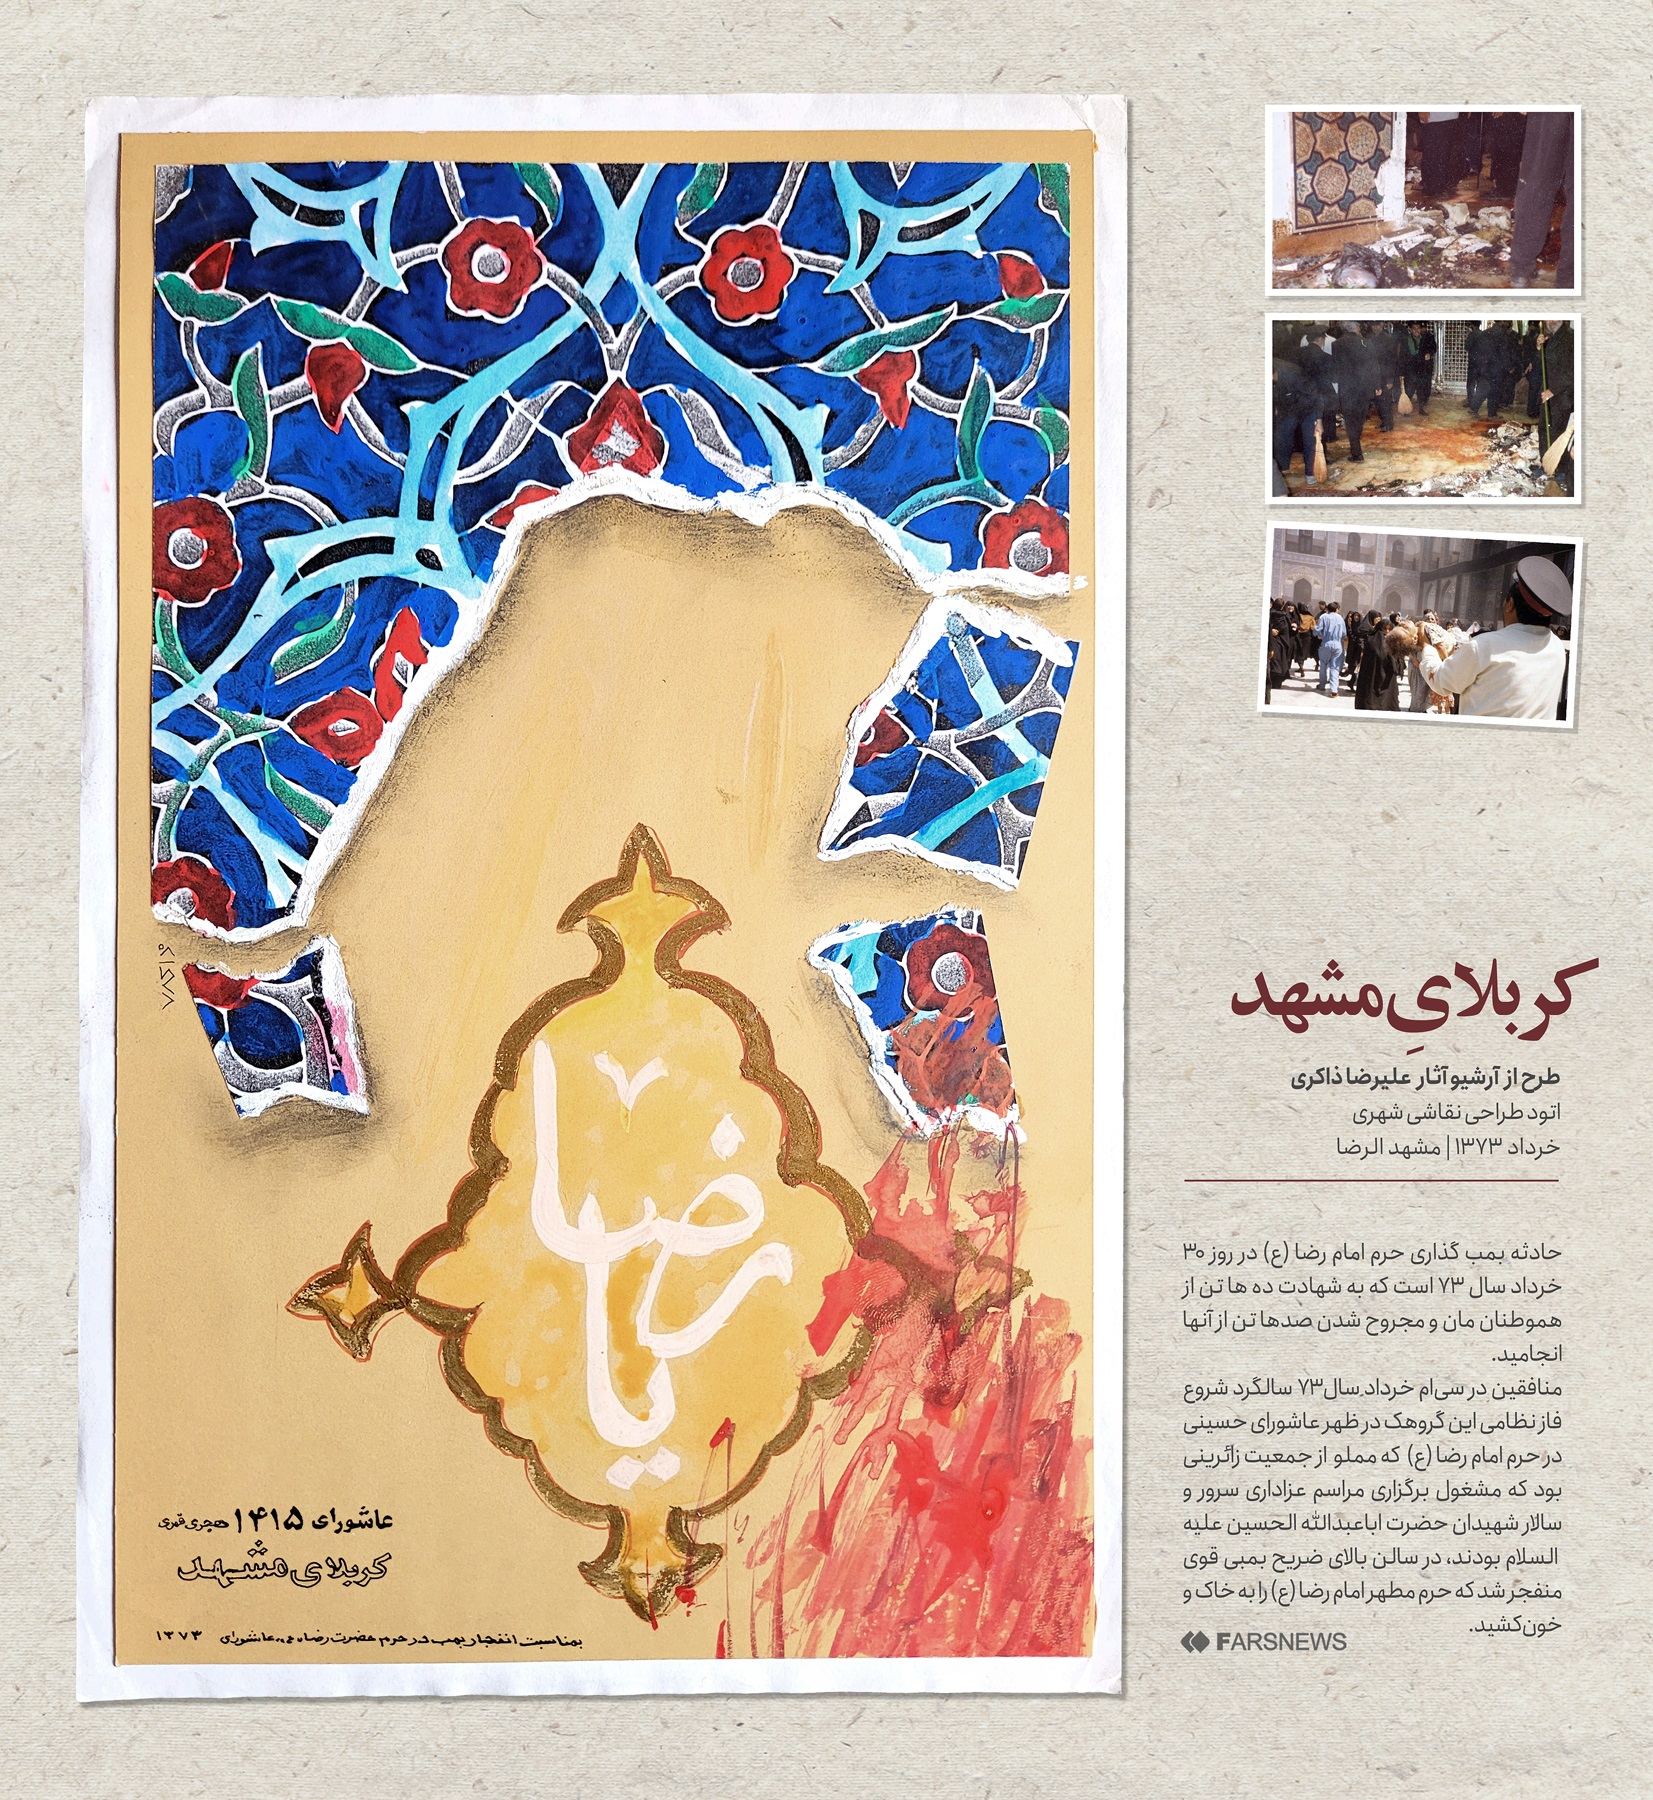 کربلایِ مشهد
طرح از آرشیو آثار علیرضا ذاکری
اتود طراحی نقاشی شهری
خرداد ۱۳۷۳ | مشهد الرضا
حادثه بمب گذاری حرم امام رضا (ع) در روز ۳۰
خرداد سال ۷۳ است که به شهادت ده ها تن از
هموطنان مان و مجروح شدن صدها تن از آنها
انجامید.
منافقین در سی‌ام خرداد سال۷۳ سالگرد شروع
فاز نظامی این گروهک در ظهر عاشورای حسینی
در حرم امام رضا (ع) که مملو از جمعیت زائرینی
بود که مشغول برگزاری مراسم عزاداری سرور و
سالار شهیدان حضرت اباعبدالله الحسین علیه
السلام بودند، در سالن بالای ضریح بمبی قوی
منفجر شد که حرم مطهر امام رضا (ع) را به خاک و
خون‌کشید.
FARSNEWS
یا رضا
عاشورای ۱۴۱۵ هجری قمری
کربلای مشهد
بمناسبت انفجار بمب در حرم حضرت رضا عاشورای ۱۳۷۳